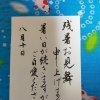 残暑お見舞
申し上げます
暑い日が続きますが
ご自愛ください
八月十日